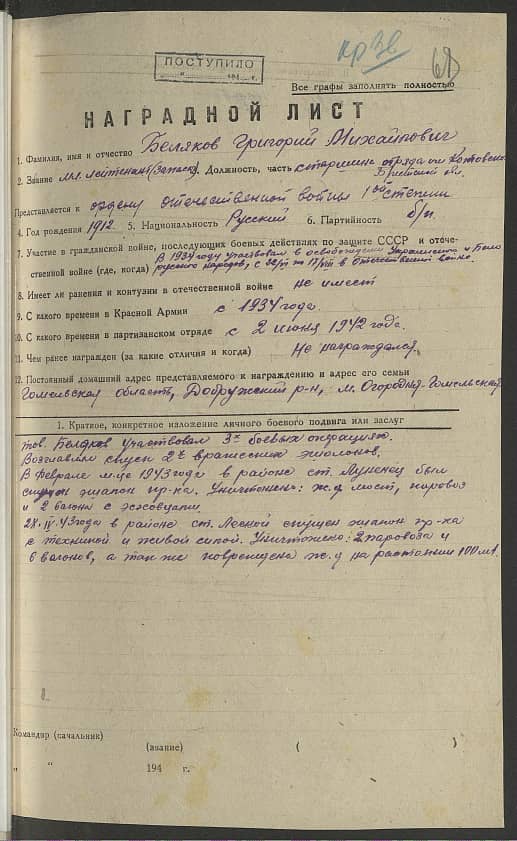 кр Зв
69
ПОСТУПИЛО
" 194 г.
Все графы заполнять полностью
НАГРАДНОЙ ЛИСТ
1. Фамилия, имя и отчество Беляков Григорий Михайлович
2. Звание мл. лейтенант (запаса) 3. Должность, часть старшина отряда им Котовского
Брестской обл.
Представляется к ордену отечественной войны 1ой степени
4. Год рождения 1912 5. Национальность Русский 6. Партийность б/п.
7. Участие в гражданской войне, последующих боевых действиях по защите СССР и отече-
ственной войне (где, когда) В 1939 году участвовал в освобождении Украинского и Бело
русского народов, с в отечественной войне.
8. Имеет ли ранения и контузии в отечественной войне не имеет
9. С какого времени в Красной Армии с 1934 года.
10. С какого времени в партизанском отряде с 2 июня 1942 года.
11. Чем ранее награжден (за какие отличия и когда) Не награждался.
12. Постоянный домашний адрес представляемого к награждению и адрес его семьи
Гомельская область, Добружский р-н, м. Огородня-Гомельская
1. Краткое, конкретное изложение личного боевого подвига или заслуг
тов. Беляков участвовал 3х боевых операциях.
Возглавлял спуск 2х вражеских эшелонов.
В Феврале м-це 1943 года в районе ст. Луненец был
спущен эшалон пр-ка. Уничтожены: ж.д мост, паровоз
и 2 вагона с
28.IV.43 года в районе ст. Лесной спущен эшалон пр-ка
с техникой и живой силой. Уничтожено: 2 паровоза и
6 вагонов, а так же повреждена ж.д на расстоянии 100 мт.
Командир (начальник)
(звание) (
" " 194 г.